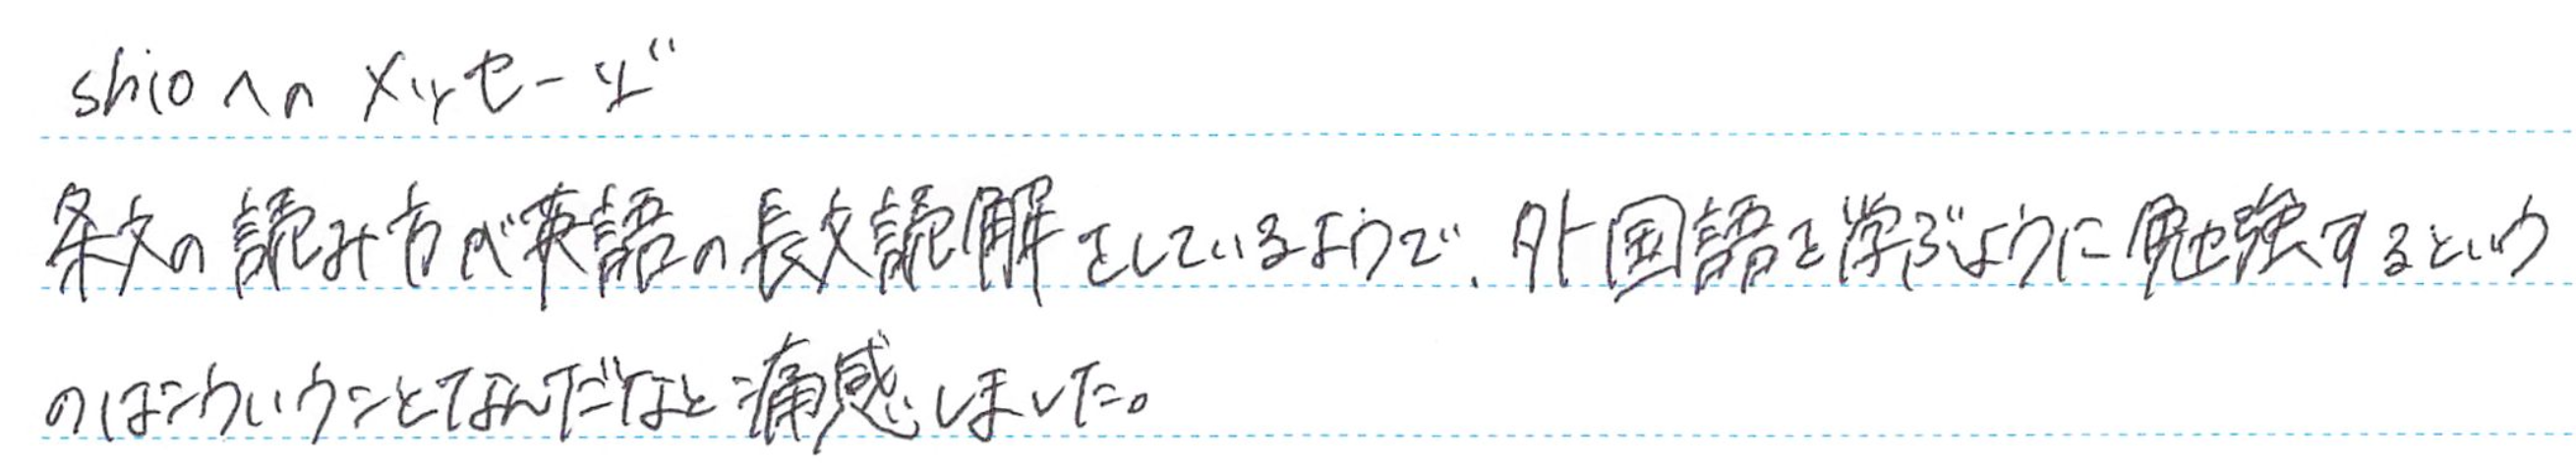 shioへのメッセージ
条文の読み方が英語の長文読解をしているようで、外国語を学ぶように勉強するという
のはこういうことなんだなと痛感しました。